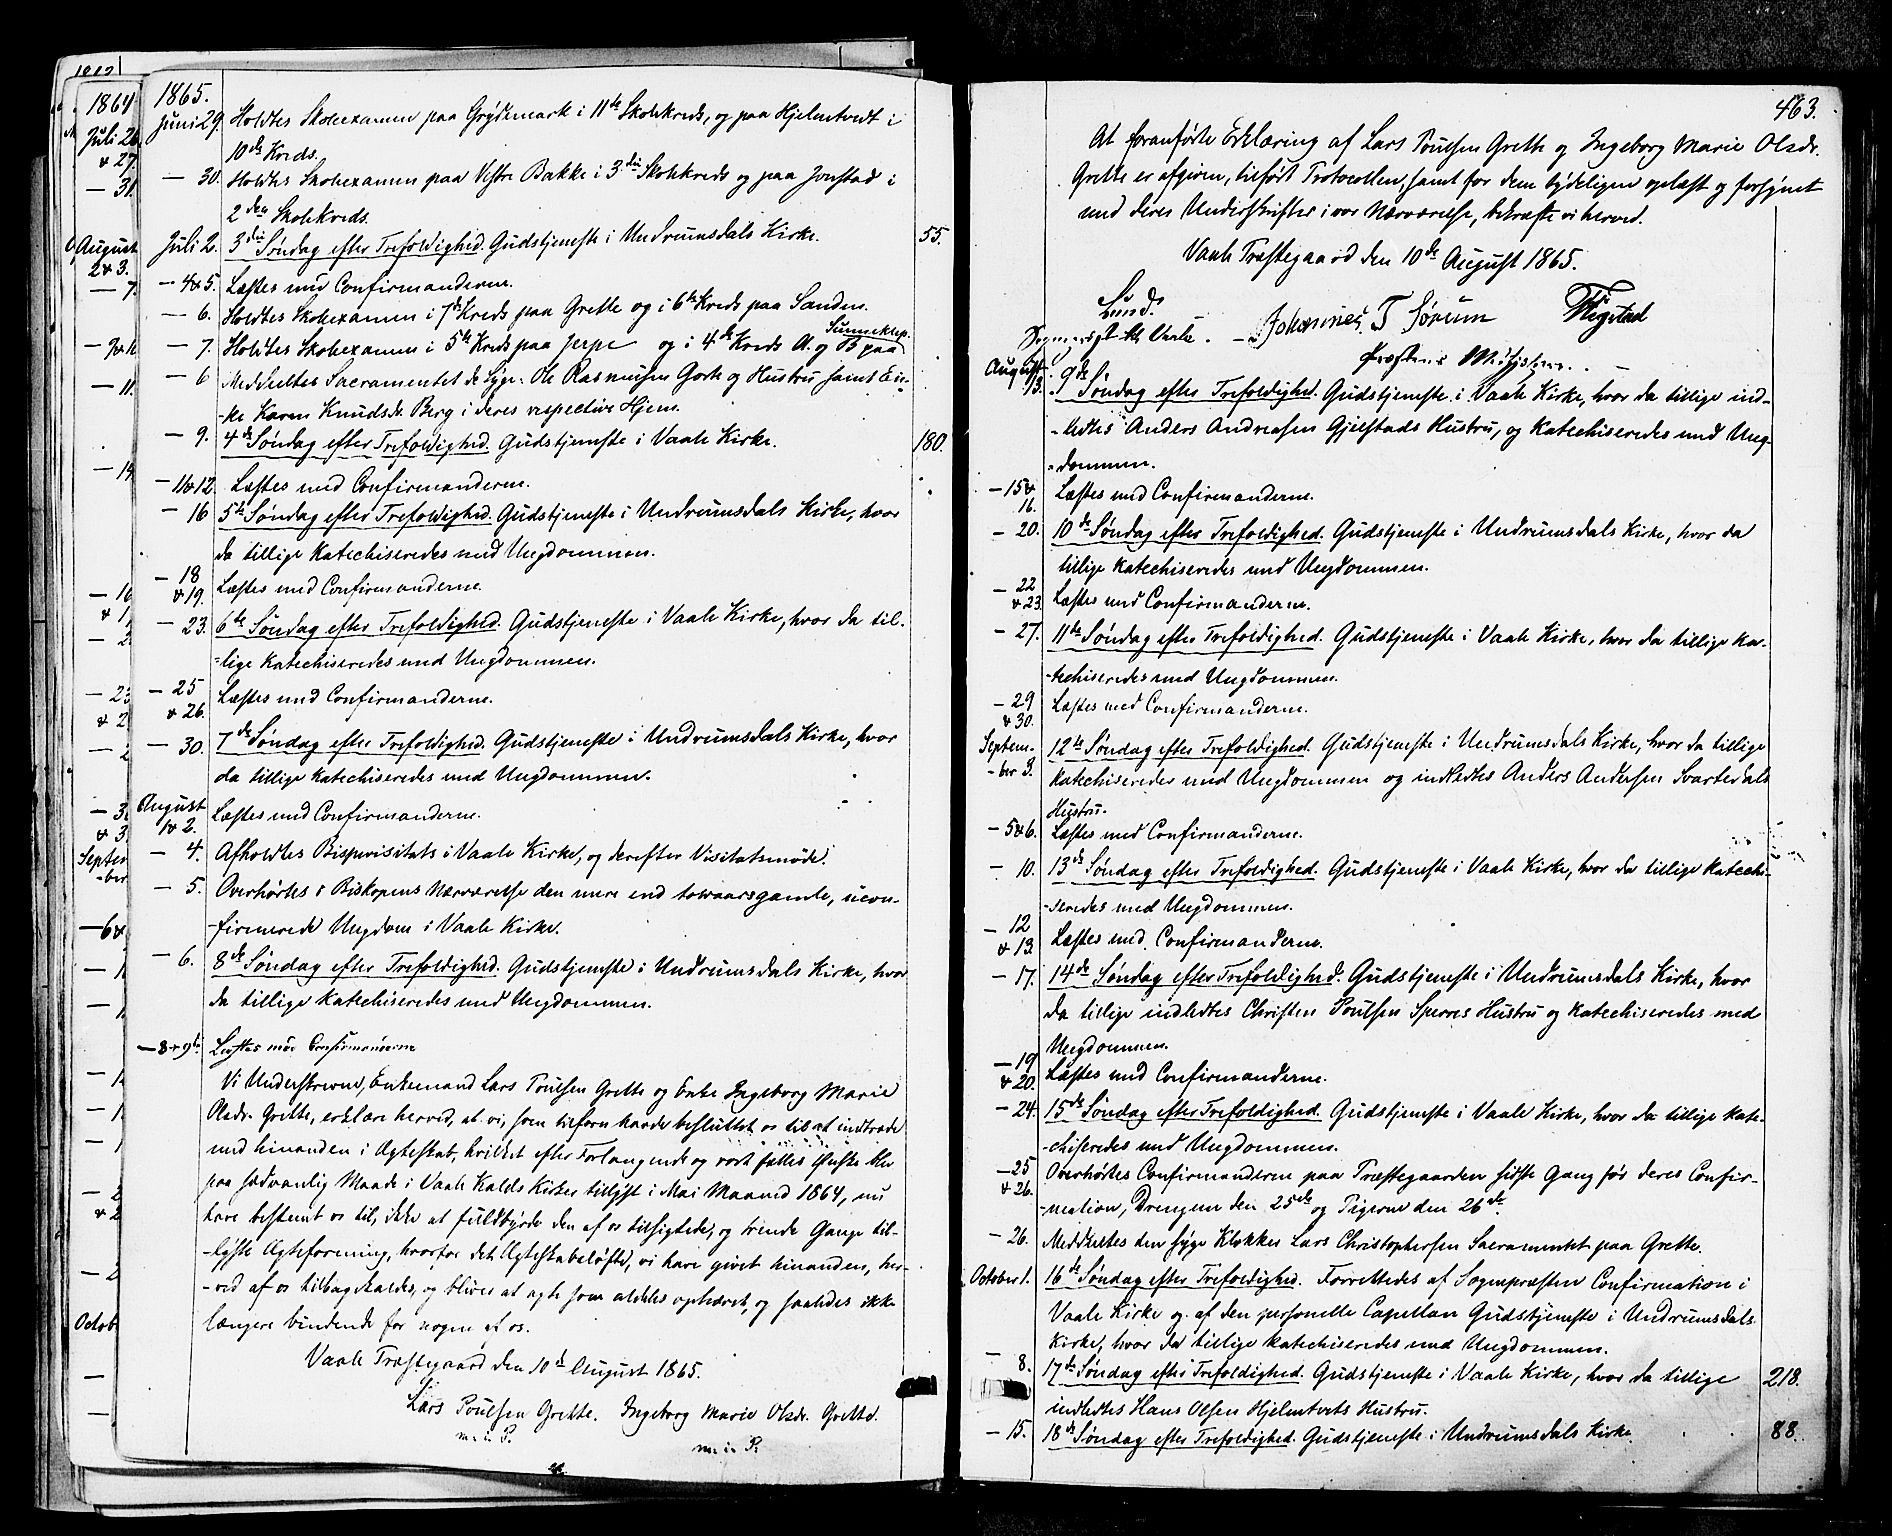 1864
Juli 26
& 27
— 31.
August
2 & 3.
— 7.
— 11.
— 14
— 16
— 23
Septem
-ber
Octob
1865.
Juni 29. Holdtes Skoleexamen paa Grydemark i 11te Skolekreds, og paa Hjelmtvedt i
10de Kreds.
— 30. Holdtes Skoleexamen paa Vestre Bakke i 3die Skolekreds og paa Jonstad i
2den Skolekreds.
Juli 2. 3die Søndag efter Trefoldighed. Gudstjeneste i Undrumsdals Kirke. 55.
— 4&5. Læstes med Confirmanderne.
— 6. Holdtes Skoleexamen i 7de Kreds paa Grette og i 6te Kreds paa Sanden.
— 7. Holdtes Skoleexamen i 5te Kreds paa Jerpe og i 4de Kreds A. og B paa
— 6 Meddeeltes Sacramentet de syge: Ole Rasmussen Gorte og Hustru samt En-
-ke Karen Knudsdr. Berg i deres respective Hjem.
— 9. 4de Søndag efter Trefoldighed. Gudstjeneste i Vaale Kirke. 180.
— 11&12. Læstes med Confirmanderne.
— 16 5te Søndag efter Trefoldighed. Gudstjeneste i Undrumsdals Kirke, hvor
da tillige katechiseredes med Ungdommen.
— 18
& 19. Læstes med Confirmanderne.
— 23. 6te Søndag efter Trefoldighed. Gudstjeneste i Vaale Kirke, hvor da til-
-lige katechiseredes med Ungdommen.
— 25
& 26. Læstes med Confirmanderne.
— 30. 7de Søndag efter Trefoldighed. Gudstjeneste i Undrumsdals Kirke, hvor
da tillige katechiseredes med Ungdommen.
August
1&2. Læstes med Confirmanderne.
— 4. Afholdtes Bispevisitats i Vaale Kirke, og derefter Visitatsmøde.
— 5. Overhørtes i Biskopens Nærværelse den mere end tolvaarsgamle, ucon-
-firmerede Ungdom i Vaale Kirke.
— 6. 8de Søndag efter Trefoldighed. Gudstjeneste i Undrumsdals Kirke, hvor
da tillige katechiseredes med Ungdommen.
— 8 & 9de Læstes med Confirmanderne
Vi Underskrevne, Enkemand Lars Poulsen Grette og Enke Ingeborg Marie
Olsdr. Grette, erklære herved, at vi, som tilforn havde besluttet os til at indtræde
med hinanden i Ægteskab, hvilket efter Forlangende og vort fælles Ønske blev
paa sædvanlig Maade i Vaale Kalds Kirker tillyst i Mai Maaned 1864, nu
have bestemt os til, ikke at fuldbyrde den af os tilsigtede, og trende Gange til-
-lyste Ægteforening, hvorfor det Ægteskabsløfte, vi have givet hinanden, her-
-ved af os tilbagekaldes, og bliver at agte som aldeles ophævet, og saaledes ikke
længere bindende for nogen af os.
Vaale Præstegaard den 10de August 1865.
Lars Poulsen Grette. Ingeborg Marie Olsdr. Grette.
m. i. P. m. i. P.
463.
At foranførte Erklæring af Lars Poulsen Grette og Ingeborg Marie Olsdr.
Grette er afgiven, tilført Protocollen, samt for dem tydeligen oplæst og forsynet
med deres Underskrifter i vor Nærværelse, bekræfte vi herved.
Vaale Præstegaard den 10de August 1865.
Lund.
Sogneprest til Vaale. Johannes T Sørum
Præstens Medhjelpere.
August
13. 9de Søndag efter Trefoldighed. Gudstjeneste i Vaale Kirke, hvor da tillige ind-
-ledtes Anders Andreasen Gjelstads Hustru, og katechiseredes med Ung-
-dommen.
— 15&
16. Læstes med Confirmanderne.
— 20. 10de Søndag efter Trefoldighed. Gudstjeneste i Undrumsdals Kirke, hvor da
tillige katechiseredes med Ungdommen.
— 22
& 23. Læstes med Confirmanderne.
— 27. 11te Søndag efter Trefoldighed. Gudstjeneste i Vaale Kirke, hvor da tillige ka-
-techiseredes med Ungdommen.
— 29
& 30. Læstes med Confirmanderne.
Septem-
-ber 3. 12te Søndag efter Trefoldighed. Gudstjeneste i Undrumsdals Kirke, hvor da tillige
katechiseredes med Ungdommen og indledtes Anders Andersen Svartedals
Hustru.
— 5&6. Læstes med Confirmanderne.
— 10. 13de Søndag efter Trefoldighed. Gudstjeneste i Vaale Kirke, hvor da tillige katechi-
-seredes med Ungdommen.
— 12
& 13. Læstes med Confirmanderne.
— 17. 14de Søndag efter Trefoldighed. Gudstjeneste i Undrumsdals Kirke, hvor
da tillige indledtes Christen Poulsen Sperres Hustru og katechiseredes med
Ungdommen.
— 19
& 20. Læstes med Confirmanderne.
— 24. 15de Søndag efter Trefoldighed. Gudstjeneste i Vaale Kirke, hvor da tillige kate-
-chiseredes med Ungdommen.
— 25
& 26. Overhørtes Confirmanderne paa Præstegaarden sidste Gang før deres Confir-
-mation, Drengene den 25de og Pigerne den 26de.
— 26. Meddeeltes den syge Klokker Lars Christophersen Sacramentet paa Grette.
October 1. 16de Søndag efter Trefoldighed. Forrettedes af Sognepræsten Confirmation i
Vaale Kirke og af den personelle Capellan Gudstjeneste i Undrumsdals
Kirke, hvor da tillige katechiseredes med Ungdommen.
— 8. 17de Søndag efter Trefoldighed. Gudstjeneste i Vaale Kirke, hvor da tillige 218.
indledtes Hans Olsen Hjelmtvets Hustru.
— 15. 18de Søndag efter Trefoldighed. Gudstjeneste i Undrumsdals Kirke. 88.